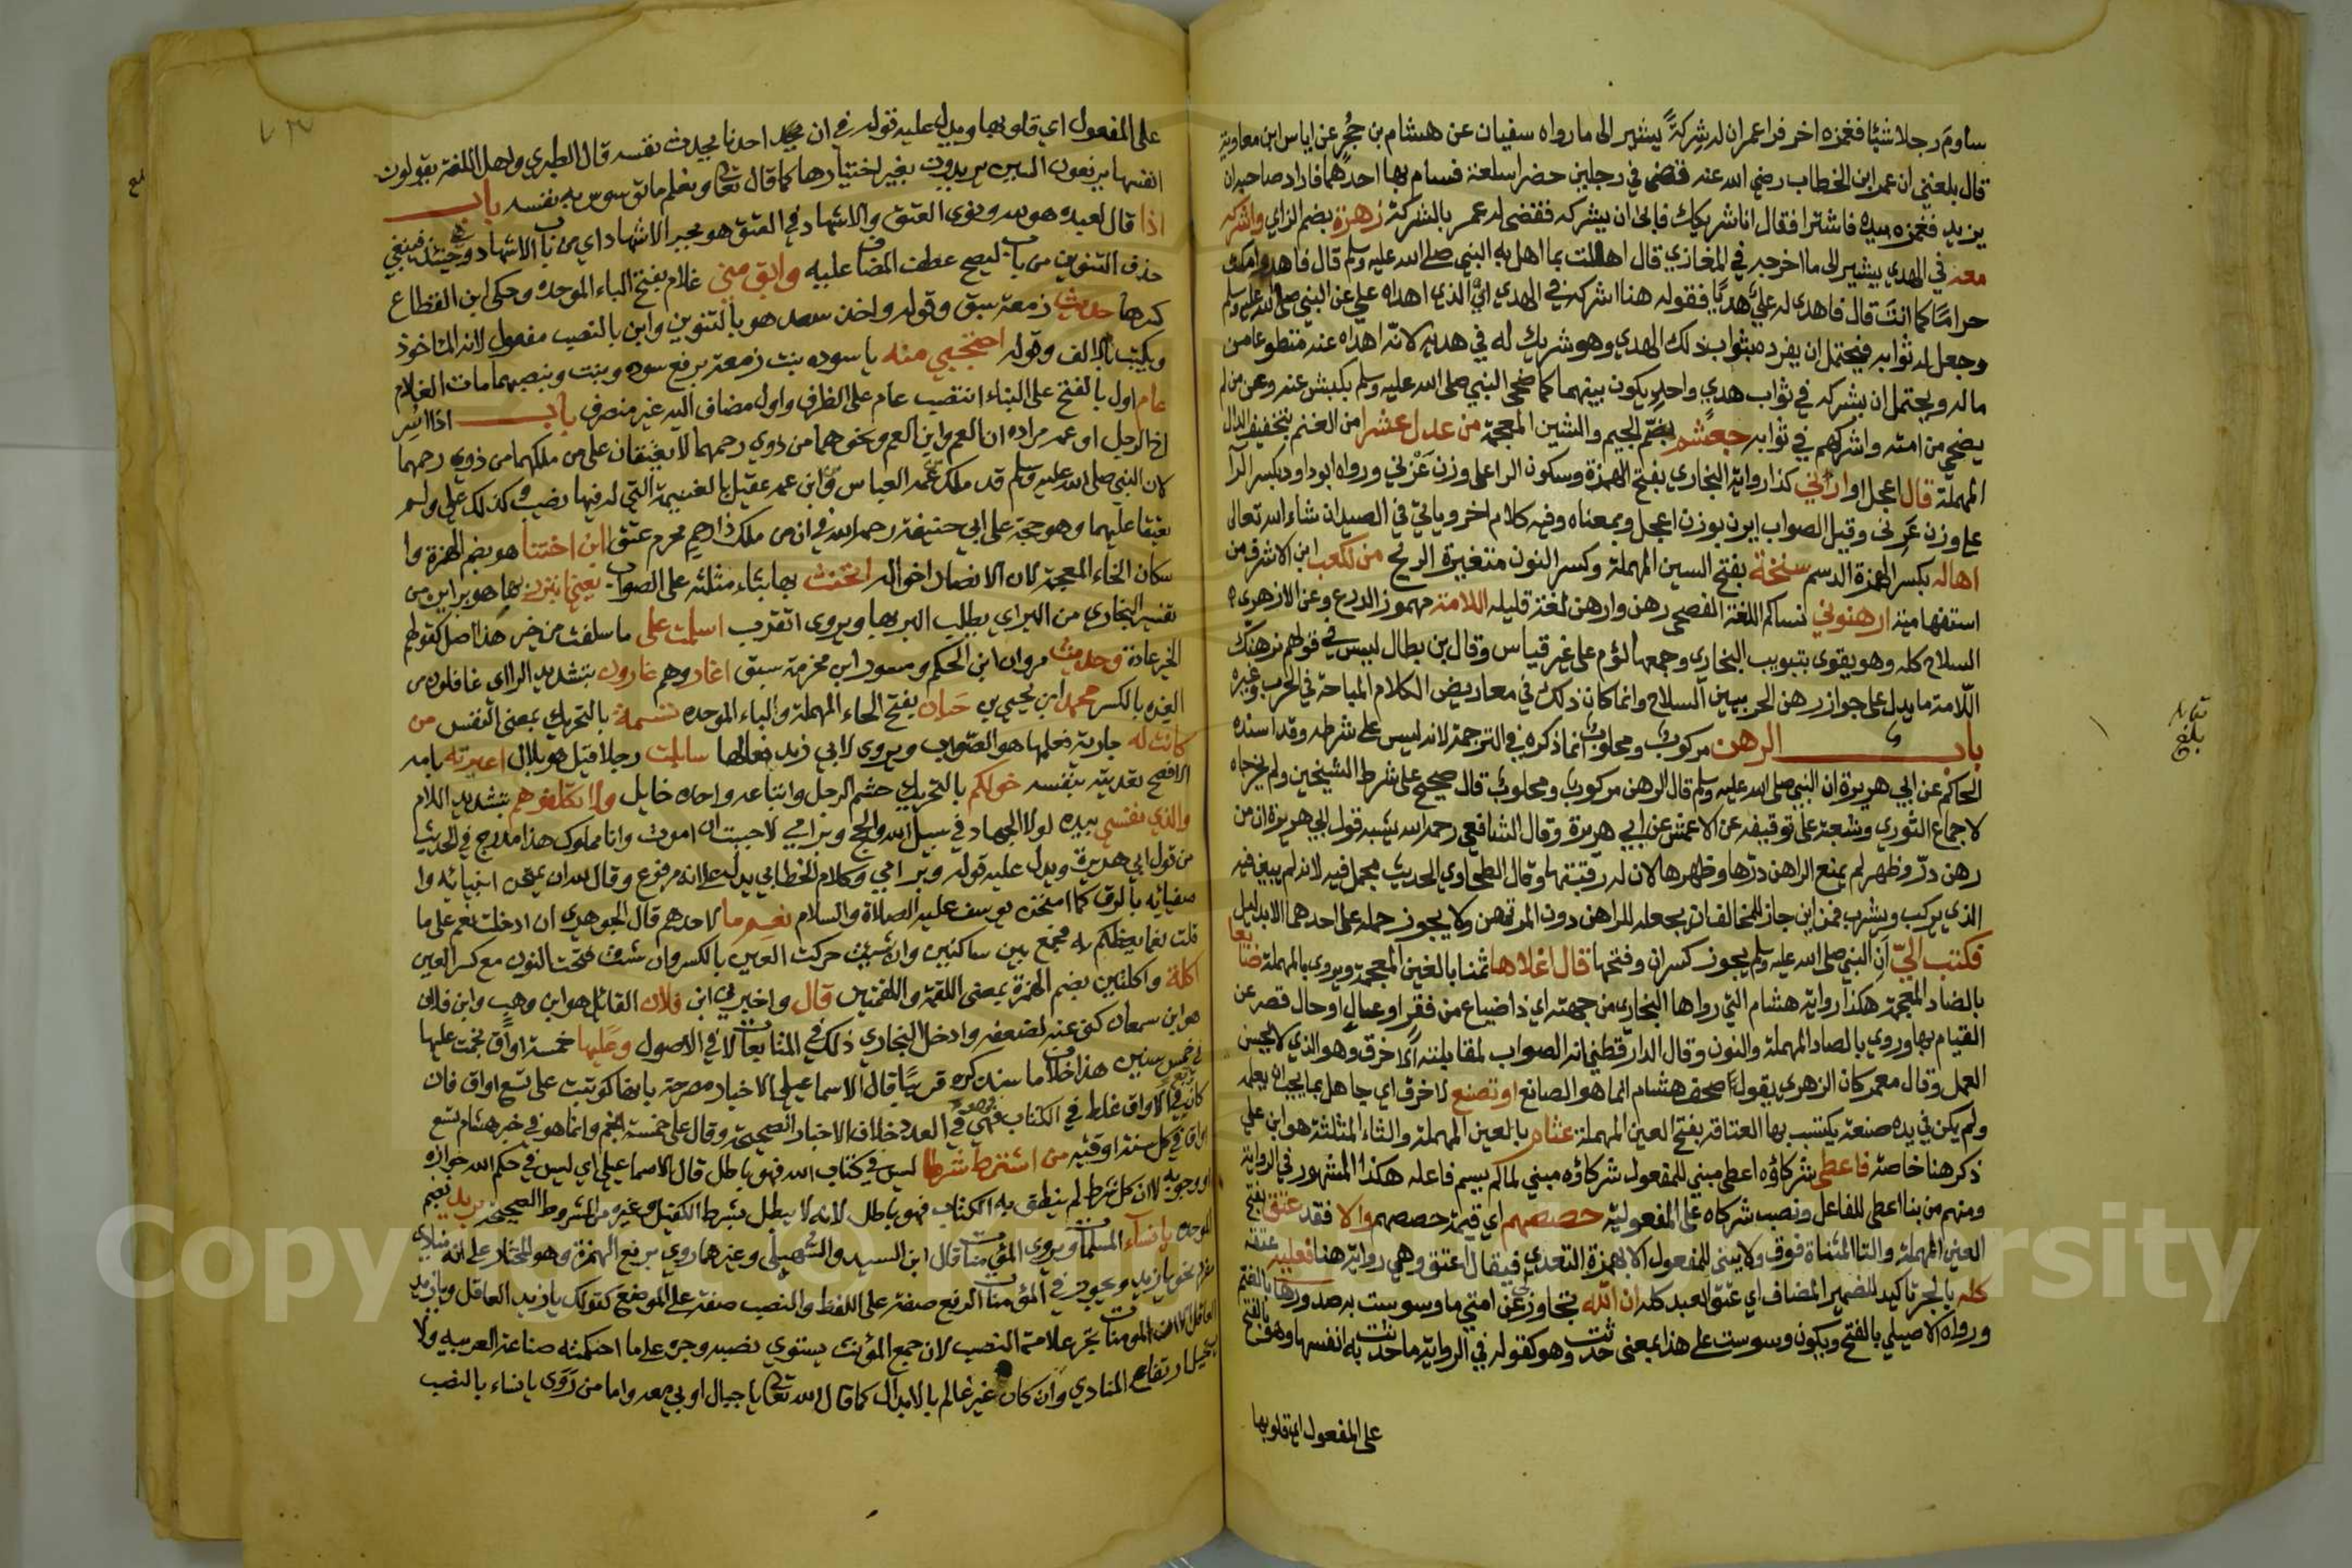 ساوم رجلا شيئا فغمزه اخر فرا عمر ان له شركة يشير الى ما رواه سفيان عن هشام بن حجر عن اياس ابن معاوية
قال بلغني ان عمر ابن الخطاب رضي الله عنه قضى في رجلين حضرا سلعة فسام بها احدهما فاراد صاحبه ان
يزيد فغمزه بيده فاشترا فقال انا شريكك فابى ان يشركه فقضى له عمر بالشركة زهرة بضم الزاي واشركه
معه في الهدي يشير الى ما اخرجه في المغازي قال اهللت بما اهل به النبي صلى الله عليه وسلم قال فاهد وامكث
حراما كما انت قال فاهدى له علي هديا فقوله هنا اشركه في الهدي اي الذي اهداه علي عن النبي صلى الله عليه وسلم
وجعل له ثوابه فيحتمل ان يفرده بثواب ذلك الهدي وهو شريك له في هديه لانه اهداه عنه متطوعا من
ماله ويحتمل ان يشركه في ثواب هدي واحد يكون بينهما كما ضحى النبي صلى الله عليه وسلم بكبش عنه وعن من لم
يضحي من امته واشركهم في ثوابه جعشم بضم الجيم والشين المعجمة من عدل عشرا من الغنم بتخفيف الدال
المهملة قال اعجل او ارني كذا رواية البخاري بفتح الهمزة وسكون الرا على وزن عزني ورواه ابو داود بكسر الرا
على وزن عرني وقيل الصواب ايرن بوزن اعجل وبمعناه وفيه كلام اخر وياتي في الصيد ان شاء الله تعالى
اهاله بكسر الهمزة الدسم سنخة بفتح السين المهملة وكسر النون متغيرة الريح من لكعب ابن الاشرف من
استفهامية ارهنوني نساكم اللغة الفصحى رهن وارهن لغة قليله اللامة مهموز الدرع وعن الازهري
السلاح كله وهو يقوى بتبويب البخاري وجمعها لؤم على غير قياس وقال بن بطال ليس في قولهم نرهنك
اللامة ما يدل على جواز رهن الحربيين السلاح وانما كان ذلك في معاريض الكلام المباحة في الحرب وغيره
باب الرهن مركوب ومحلوب انما ذكره في الترجمة لانه ليس على شرطه وقد اسنده
الحاكم عن ابي هريرة ان النبي صلى الله عليه وسلم قال الرهن مركوب ومحلوب قال صحيح على شرط الشيخين ولم يخرجاه
لاجماع الثوري وشعبة على توقيفه عن الاعمش عن ابي هريرة وقال الشافعي رحمه الله يشبه قول ابي هريرة ان من
رهن در وظهر لم يمنع الراهن درها وظهرها لان له رقبتها وقال الطحاوي الحديث مجمل فيه لانه لم يبين فيه
الذي يركب ويشرب فمن اين جاز للمخالف ان يجعله للراهن دون المرتهن ولا يجوز حمله على احدهما الا بدليل
فكتب الي ان النبي صلى الله عليه وسلم يجوز كسر ان وفتحها قال اغلاها ثمنا بالغين المعجمة ويروى بالمهملة ضايعا
بالضاد المعجمة هكذا رواية هشام التي رواها البخاري من جهته اي ذا ضياع من فقر او عيال او حال قصر عن
القيام بها وروي بالصاد المهملة والنون وقال الدارقطني انه الصواب لمقابلته لاخرق وهو الذي لا يحسن
العمل وقال معمر كان الزهري يقول صحف هشام انما هو الصانع او تصنع لاخرق اي جاهل بما يجب ان يعلمه
ولم يكن في يده صنعة يكتسب بها العتاقة بفتح العين المهملة عثام بالعين المهملة والثاء المثلثة هو ابن علي
ذكر هنا خاصة فاعطى شركاؤه اعطى مبني للمفعول شركاؤه مبني لما لم يسم فاعله هكذا المشهور في الرواية
ومنهم من بنا اعطى للفاعل ونصب شركاه على المفعولية حصصهم اي قيمة حصصهم والا فقد عتق بفتح
العين المهملة والتا المثناة فوق ولا يبنى للمفعول الا بهمزة التعدي فيقال اعتق وهي رواية هنا فعليه عتقه
كله بالجر تاكيد للضمير المضاف اي عتق العبد كله ان الله تجاوز عن امتي ما وسوست به صدورها بالضم
ورواه الاصيلي بالفتح ويكون وسوست على هذا بمعنى حدثت وهو كقوله في الرواية ما حدثت به انفسها وهو بالفتح
على المفعول اي قلوبها
تقابله
بلغ
على المفعول اي قلوبها ويدل عليه قوله في ان احدنا يحدث نفسه قال الطبري واهل اللغة يقولون
انفسها يرفعون السين يريدون بغير اختيارها كما قال تعالى ونعلم ما توسوس به نفسه باب
اذا قال لعبده هو لله ونوى العتق والاشهاد في العتق هو بجر الاشهاد اي من باب الاشهاد وحينئذ فينبغي
حذف التنوين من باب ليصح عطف المضاف عليه وابق مني غلام بفتح الباء الموحده وحكى ابن القطاع
كسرها حديث زمعة سبق وقوله واخذ سعد هو بالتنوين وابن بالنصب مفعول لانه الماخوذ
ويكتب بالالف وقوله احتجبي منه يا سوده بنت زمعة برفع سوده وبنت وبنصبهما مات الغلام
عام اول بالفتح على البناء انتصب عام على الظرف واول مضاف اليه غير منصرف باب اذا اسر
اخا الرجل او عمه مراده ان العم وابن العم ونحوهما من ذوي رحمهما لا يعتقان على من ملكهما من ذوي رحمهما
لان النبي صلى الله عليه وسلم قد ملك عمه العباس وابن عمه عقيل بالغنيمة التي له فيها نصيب وكذلك علي ولم
يعتقا عليهما وهو حجة على ابي حنيفة رحمه الله في ان من ملك ذا رحم محرم عتق ابن اختنا هو بضم الهمزة وا
سكان الخاء المعجمة لان الانصار اخواله اتحنث بها بثاء مثلثة على الصواب يعني اتبرر بها هو براين من
تفسير البخاري من البر اي يطلب البر بها ويروى اتقرب اسلمت على ما سلفت من خير هذا اصل كقولهم
الخير عادة وحديث مروان ابن الحكم ومسور ابن مخرمة سبق اغار وهم غارون بتشديد الرا اي غافلون من
الغره بالكسر محمد ابن يحيى بن حبان بفتح الحاء المهملة والباء الموحده نسمة بالتحريك بمعنى النفس من
كانت له جارية فعلمها هو الصواب ويروى لابي زيد فعالها ساببت رجلا قيل هو بلال اعيرته بامه
الافصح تعديته بنفسه خولكم بالتحريك حشم الرجل واتباعه واحده خايل ولا تكلفوهم بتشديد اللام
والذي نفسي بيده لولا الجهاد في سبيل الله والحج وبر امي لاحببت ان اموت وانا مملوك هذا مدرج في الحديث
من قول ابي هريرة ويدل عليه قوله وبر امي وكلام الخطابي يدل على انه مرفوع وقال لله ان يمتحن انبيائه وا
صفيائه بالرق كما امتحن يوسف عليه الصلاة والسلام نعم ما لاحدهم قال الجوهري ان ادخلت نعم على ما
قلت نعما يعظكم به فجمع بين ساكنين وان شيت حركت العين بالكسر وان شيت فتحت النون مع كسر العين
اكلة واكلتين بضم الهمزة بمعنى اللقمة واللقمتين قال واخبرني ابن فلان القائل هو ابن وهب وابن فلان
هو ابن سمعان كنى عنه لضعفه وادخل البخاري ذلك في المتابعات لا في الاصول وعليها خمسة اواق نجمت عليها
في خمس سنين هذا خلاف ما سنذكره قريبا قال الاسماعيلي الاخبار مصرحة بانها كوتبت على تسع اواق فان
كانت في الاواق غلط في الكتاب فهي في العدد خلاف الاخبار الصحيحة وقال على خمسة انجم وانما هو في خبر هشام تسع
اواق في كل سنة اوقيه من اشترط شرطا ليس في كتاب الله فهو باطل قال الاسماعيلي اي ليس في حكم الله جوازه
او وجوبه لا ان كل شرط لم ينطق به الكتاب فهو باطل لانه لا يبطل بشرط الكفيل وغيره من الشروط الصحيحة بريد بضم
الموحده يا نساء المسلمات ويروى المؤمنات قال ابن السيد والسهيلي وغيرهما روي برفع الهمزة وهو المختار على انه منادى
مفرد نحو يا زيد ويجوز في المؤمنات الرفع صفة على اللفظ والنصب صفة على الموضع كقولك يا زيد العاقل ويا زيد
العاقل الا ان المومنات تجر علامة النصب لان جمع المؤنث يستوي نصبه وجره على ما احكمته صناعة العربيه ولا
يستحيل ارتفاع المنادى وان كان غير عالم بالابدال كما قال الله تعالى يا جبال اوبي معه واما من روى يا نساء بالنصب
Copyright © King Saud University